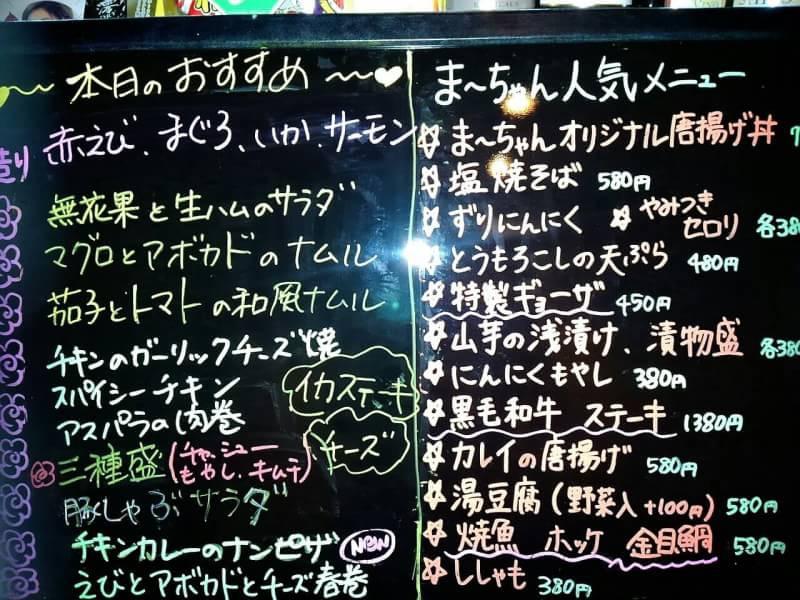 本日のおすすめ
造り
赤えび、まぐろ、いか、サーモン
無花果と生ハムのサラダ
マグロとアボカドのナムル
茄子とトマトの和風ナムル
チキンのガーリックチーズ焼
スパイシーチキン
アスパラの肉巻
イカステーキ
チーズ
三種盛(チャーシュー
もやし、キムチ)
豚しゃぶサラダ
チキンカレーのナンピザ NEW
えびとアボカドとチーズ春巻
ま〜ちゃん人気メニュー
☆ま〜ちゃんオリジナル唐揚げ丼
☆塩焼そば 580円
☆ずりにんにく ☆やみつき
セロリ 各380
☆とうもろこしの天ぷら 480円
☆特製ギョーザ 450円
☆山芋の浅漬け、漬物盛 各380
☆にんにくもやし 380円
☆黒毛和牛 ステーキ 1380円
☆カレイの唐揚げ 580円
☆湯豆腐(野菜入+100円) 580円
☆焼魚 ホッケ 金目鯛 580円
☆ししゃも 380円